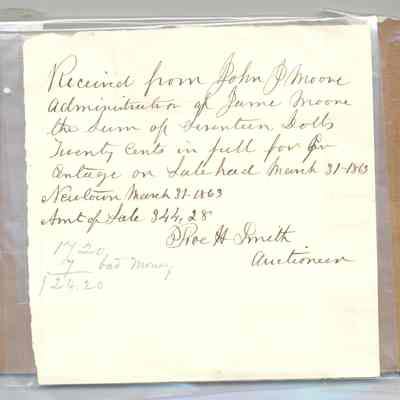 Received from John J Moore
Administrator of Jame Moore
the Sum of Seventeen Dolls
Twenty Cents in full for
Centage on Sale had March 31-1863
Newtown March 31-1863
Amt of Sale 344,28
Roe H Smith
Auctioneer
17 20
7 bad Money
$24.20